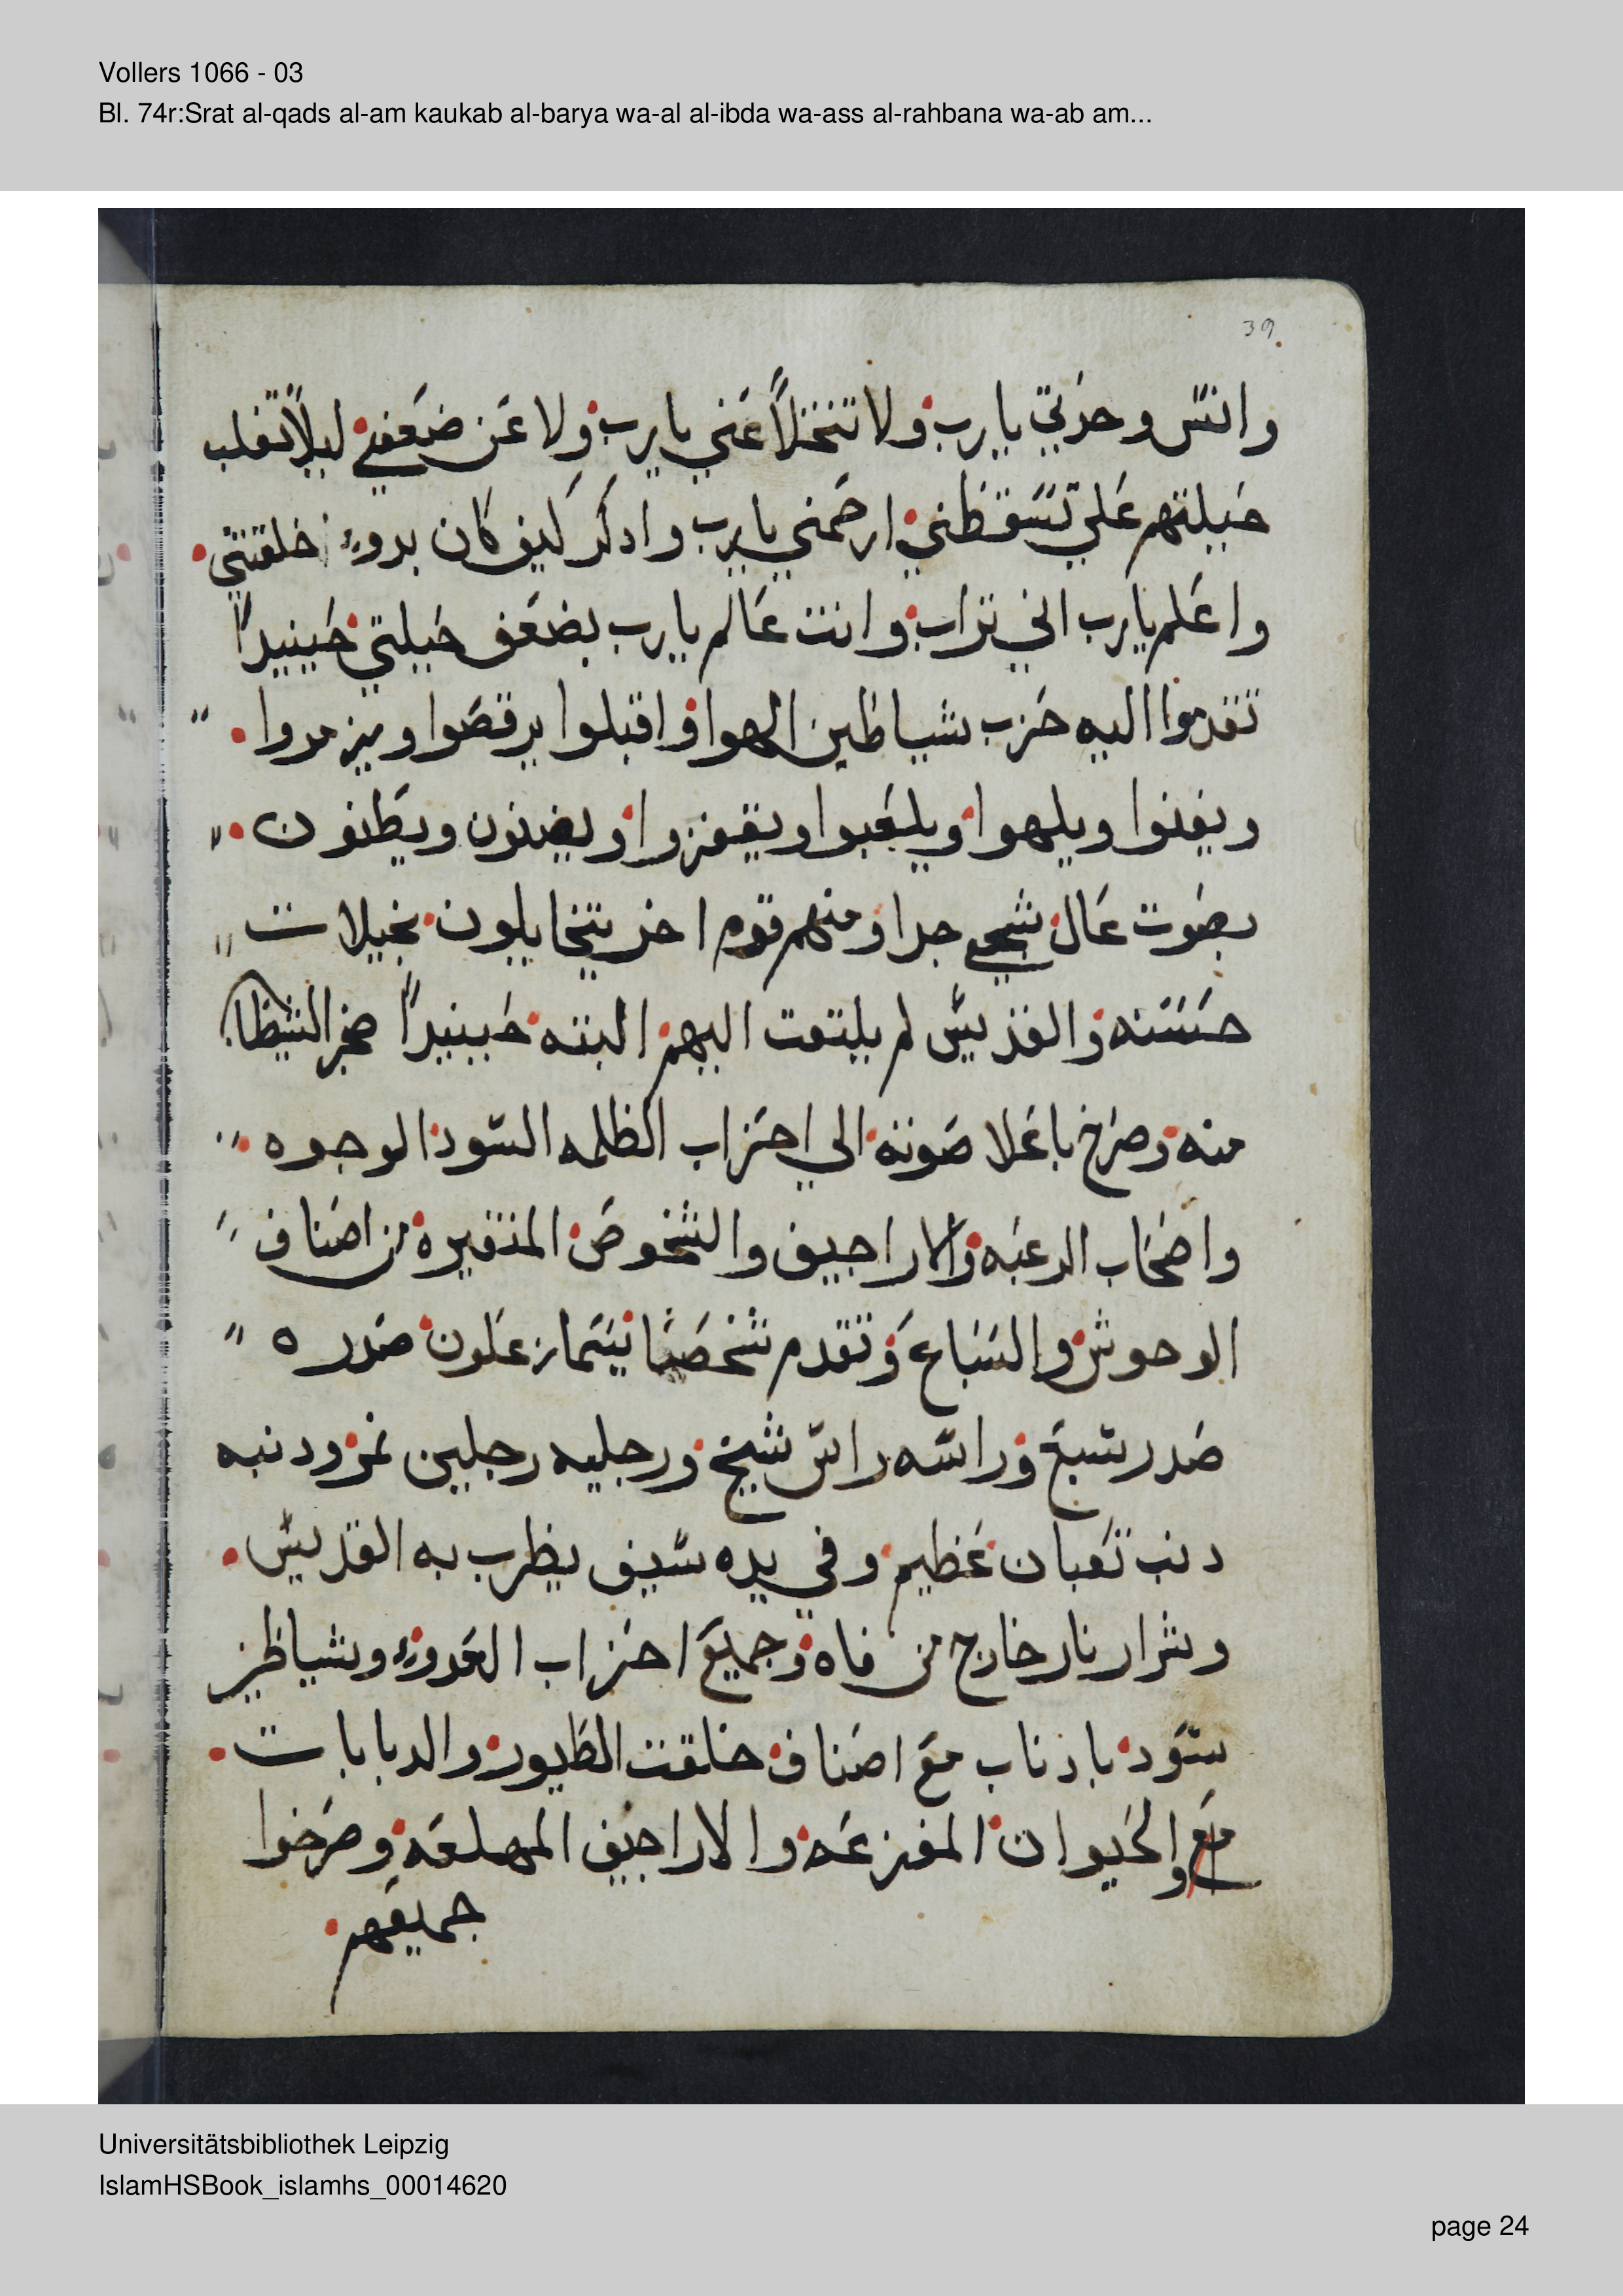 Vollers 1066 - 03
Bl. 74r:Srat al-qads al-am kaukab al-barya wa-al al-ibda wa-ass al-rahbana wa-ab am...
39
وانس وحدتي يارب ولا تتخلا عني يارب ولا عن ضعفي ليلا تغلب
حيلتهم علي تسقطني ارحمني يارب وادكر كيف كان بدوء خلقتي
واعلم يارب اني تراب وانت عالم يارب بضعف حيلتي حينيدا
تقدموا اليه حزب شياطين الهوا واقبلوا يرقصوا ويزمروا
ويغنوا ويلهوا ويلعبوا ويقفزوا ويضنون ويطنون
بصوت عال شجي جدا ومنهم قوم اخر يتخايلون بخيلات
حسنه والقديس لم يلتفت اليهم البته حينيدا ضجر الشيطان
منه وصرخ باعلا صوته الي احزاب الظلمه السود الوجوه
واصحاب الرعبه والاراجيف والشخوص المتغيره من اصناف
الوحوش والسباع وتقدم شخصا يسما زعلون صدره
صدر سبع وراسه راس شيخ ورجليه رجلين نمر ودنبه
دنب تعبان عظيم وفي يده سيف يظرب به القديس
وشرار نار خارج من فاه وجميع احزاب العدوء وشياطين
سود بادناب مع اصناف خلقت الطيور والدبابات
مع والحيوان المفزعه والاراجيف المهلعه وصرخوا
جميعهم
Universitätsbibliothek Leipzig
IslamHSBook_islamhs_00014620
page 24